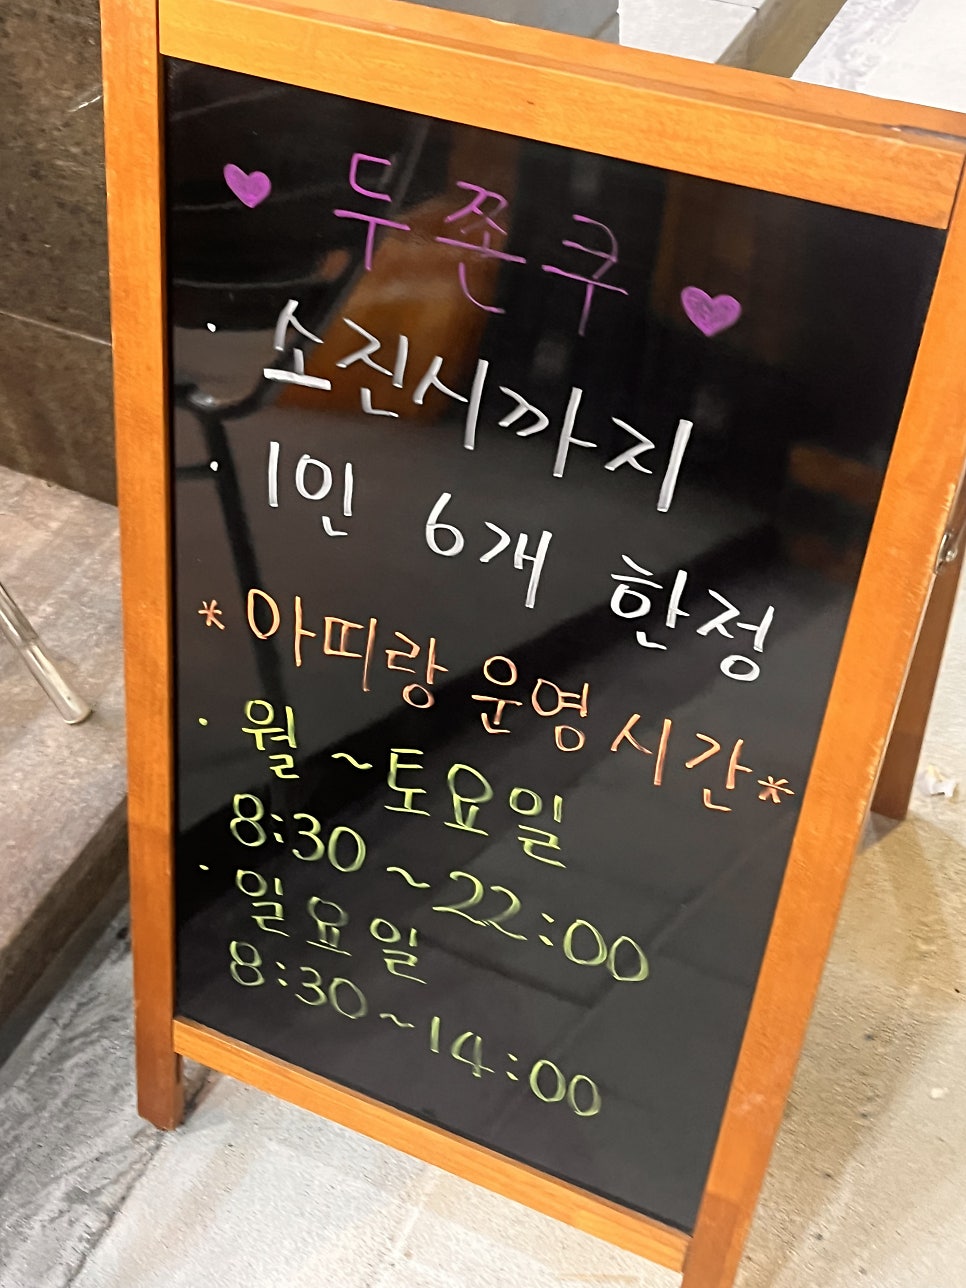 ♥ 두쫀쿠 ♥
· 소진시까지
· 1인 6개 한정
*아띠랑 운영시간*
· 월~토요일
8:30~22:00
· 일요일
8:30~14:00